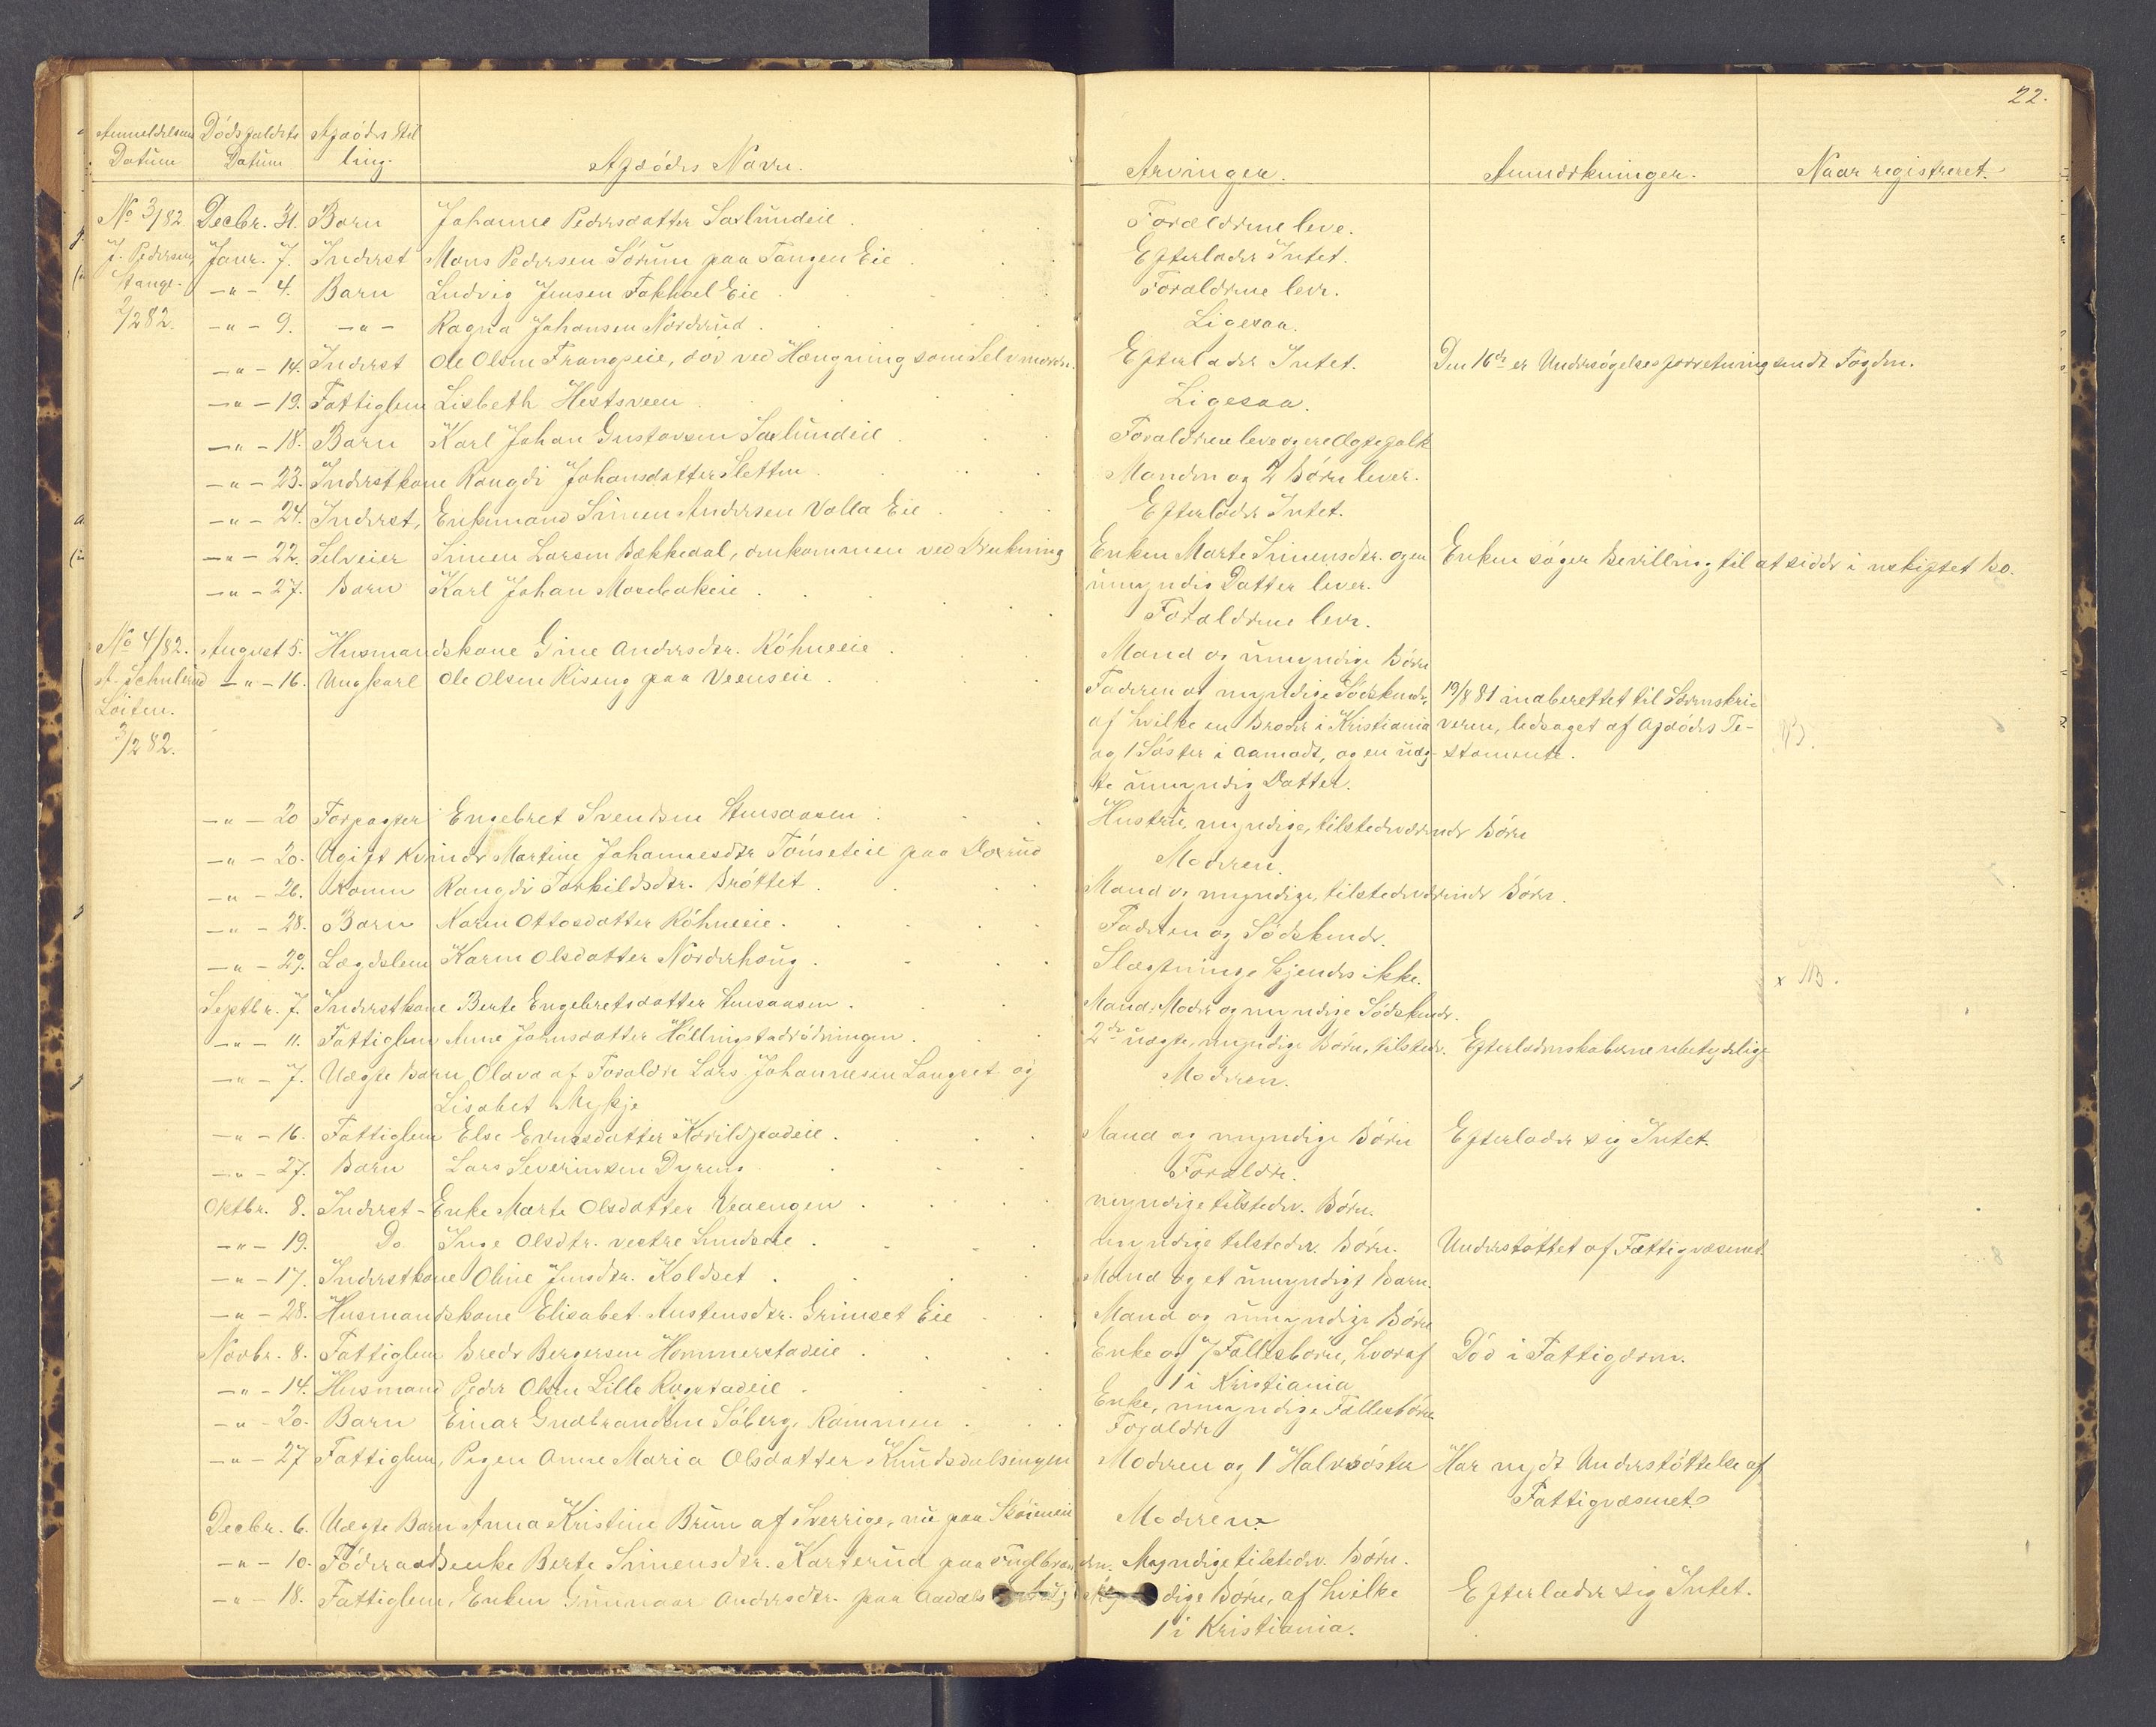 22.
Anmeldelsens Datum Dödsfaldets Datum Afdödes Stilling. Afdödes Navn. Arvinger. Anmærkninger. Naar registreret.
No 3/82. Decbr. 31. Barn Johanne Pedersdatter Saxlundeie Forældrene leve.
J. Pedersen, Janr. 7. Inderst Mons Pedersen Sörum paa Tangen Eie Efterlader Intet.
Stange. -"- 4. Barn Ludvig Jensen Eie Forældrene leve.
2/2 82. -"- 9. -"- Ragna Johansen Nordsrud Ligesaa.
-"- 14. Inderst Ole Olsen Frangseie, död ved Hængning som Selvmorder. Efterlader Intet. Den 16de er Undersögelsesforretning sendt Fogden.
-"- 19. Fattiglem Lisbeth Hestsveen Ligesaa.
-"- 18. Barn Karl Johan Gustavsen Saxlundeie Forældrene leve og ere Ægtefolk
-"- 23. Inderstkone Rangdi Johansdatter Sletten Manden og 2 Börn lever.
-"- 24. Inderst, Enkemand Simen Andersen Valla Eie Efterlader Intet.
-"- 22. Selveier Simen Larsen Bækkedal, omkommen ved Drukning Enken Marte Simensdtr. og en Enken söger Bevilling til at sidde i uskiftet Bo.
umyndig Datter lever.
-"- 27. Barn Karl Johan Morbakeie Forældrene leve.
No 4/82. August 5. Husmandskone Gine Andersdtr. Röhneeie Mand og umyndige Börn
A. Schulerud -"- 16. Ungkarl Ole Olsen Riseng paa Veenseie Faderen og myndige Södskende, 19/8 81 indberettet til Sorenskri-
Löiten. af hvilke en Broder i Kristiania veren, ledsaget af Afdödes Te-
3/2 82. og 1 Söster i Aamodt, og en uæg- stamente. NB.
te umyndig Datter.
-"- 20 Forpagter Engebret Svendsen Stensaasen Hustru, myndige, tilstedeværende Börn
-"- 20. Ugift Kvinde Martine Johannesdtr Tönseteie paa Daxrud Moderen.
-"- 26. Kone Rangdi Torkildsdtr. Bröttet Mand og myndige, tilstedeværende Börn.
-"- 28. Barn Karen Ottosdatter Röhneeie. Faderen og Södskende.
-"- 29. Lægdslem Karen Olsdatter Nordrehoug. Slægtninge kjendes ikke. x NB.
Septbr. 7. Inderstkone Berte Engebretsdatter Stensaasen. Mand, Moder og myndige Södskende.
-"- 11. Fattiglem Anne Johnsdatter Hollingstadrödningen 2de uægte, myndige Börn, tilstede. Efterladenskaberne ubetydelige
-"- 7. Uægte Barn Olava af Forældre Lars Johannesen Langset og Moderen.
Lisabet Mykje
-"- 16. Fattiglem Else Evensdatter Mand og myndige Börn Efterlader sig Intet.
-"- 27. Barn Lars Severinsen Dyreng Forældre.
Oktbr. 8. Inderst-Enke Marte Olsdatter Veaengen myndige tilstedev. Börn.
-"- 19. Do Inge Olsdtr. vestre Lundsæie. myndige tilstedev. Börn. Understöttet af Fattigvæsenet.
-"- 17. Inderstkone Oline Jensdtr. Koldset Mand og et umyndigt Barn.
-"- 28. Husmandskone Elisabet Austensdtr. Grimset Eie Mand og umyndige Börn
Novbr. 8. Fattiglem Brede Bergersen Hommerstadeie Enke og 7 Fællesbörn, hvoraf Död i Fattiggaarden.
1 i Kristiania
-"- 14. Husmand Peder Olsen Lille Rogstadeie Enke, umyndige Fællesbörn
-"- 20. Barn Einar Gudbrandsen Söberg, Rommen Forældre
-"- 27 Fattiglem, Pigen Anne Maria Olsdatter Moderen og 1 Halvsöster Har nydt Understöttelse af
Fattigvæsenet.
Decbr. 6. Uægte Barn Anna Kristine Brun af Sverrige, nu paa Moderen.
-"- 10. Föderaadsenke Berte Simensdtr. Karterud paa Fuglbranden. Myndige tilstedev. Börn.
-"- 18. Fattiglem, Enken Gunnaar Andersdtr. paa Myndige Börn, af hvilke Efterlader sig Intet.
1 i Kristiania.